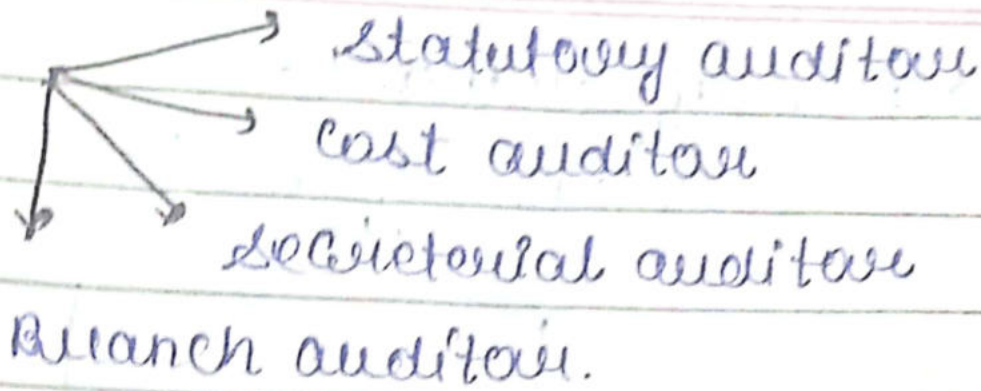 Statutory auditor
Cost auditor
Secretarial auditor
Branch auditor.